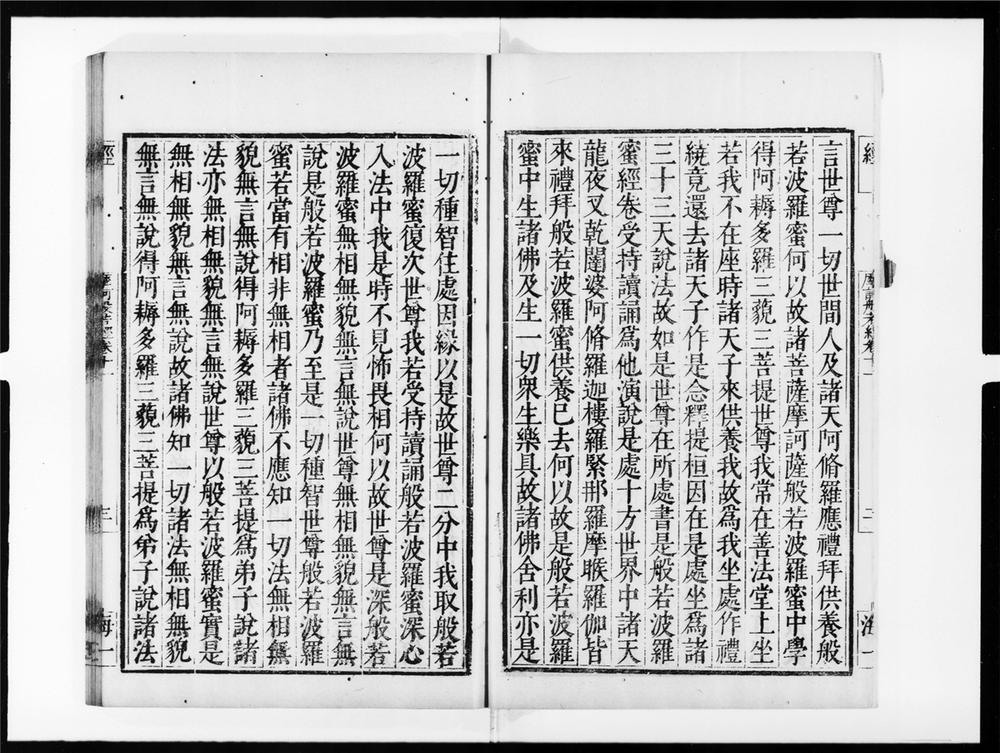 言世尊一切世間人及諸天阿脩羅應禮拜供養般
若波羅蜜何以故諸菩薩摩訶薩般若波羅蜜中學
得阿耨多羅三藐三菩提世尊我常在善法堂上坐
若我不在座時諸天子來供養我故爲我坐處作禮
繞竟還去諸天子作是念釋提桓因在是處坐爲諸
三十三天說法故如是世尊在所處書是般若波羅
蜜經卷受持讀誦爲他演說是處十方世界中諸天
龍夜叉乾闥婆阿脩羅迦樓羅緊那羅摩睺羅伽皆
來禮拜般若波羅蜜供養已去何以故是般若波羅
蜜中生諸佛及生一切衆生樂具故諸佛舍利亦是
一切種智住處因緣以是故世尊二分中我取般若
波羅蜜復次世尊我若受持讀誦般若波羅蜜深心
入法中我是時不見怖畏相何以故世尊是深般若
波羅蜜無相無貌無言無說世尊無相無貌無言無
說是般若波羅蜜乃至是一切種智世尊般若波羅
蜜若當有相非無相者諸佛不應知一切法無相無
貌無言無說得阿耨多羅三藐三菩提爲弟子說諸
法亦無相無貌無言無說世尊以般若波羅蜜實是
無相無貌無言無說故諸佛知一切諸法無相無貌
無言無說得阿耨多羅三藐三菩提爲弟子說諸法
經
三
海一